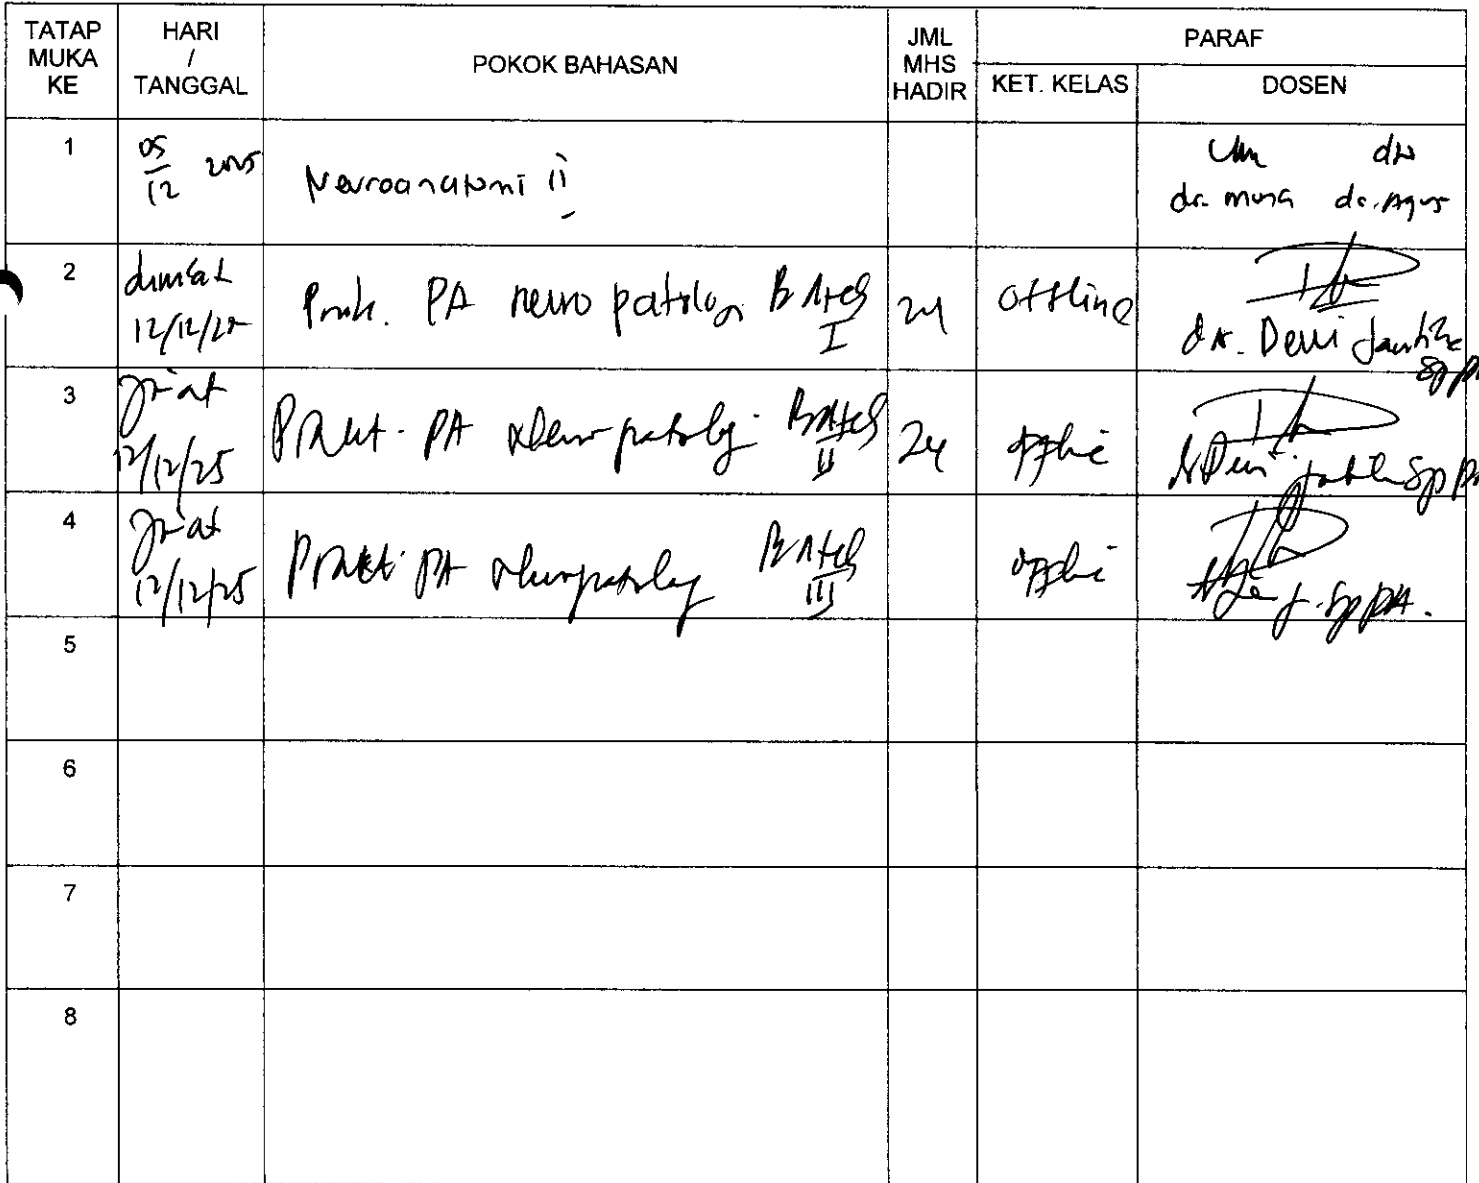 TATAP MUKA KE
HARI / TANGGAL
POKOK BAHASAN
JML MHS HADIR
PARAF
KET. KELAS
DOSEN
1
05/12 2025
Neuroanatomi II
dr. Musa dr. Agus
2
12/12/25
Prak. PA neuropatologi Batch I
offline
dr. Devi
3
12/12/25
Prakt. PA neuropatologi Batch II
24
offline
Sp PA
4
12/12/25
Prakt PA neuropatologi Batch III
offline
Sp PA.
5
6
7
8